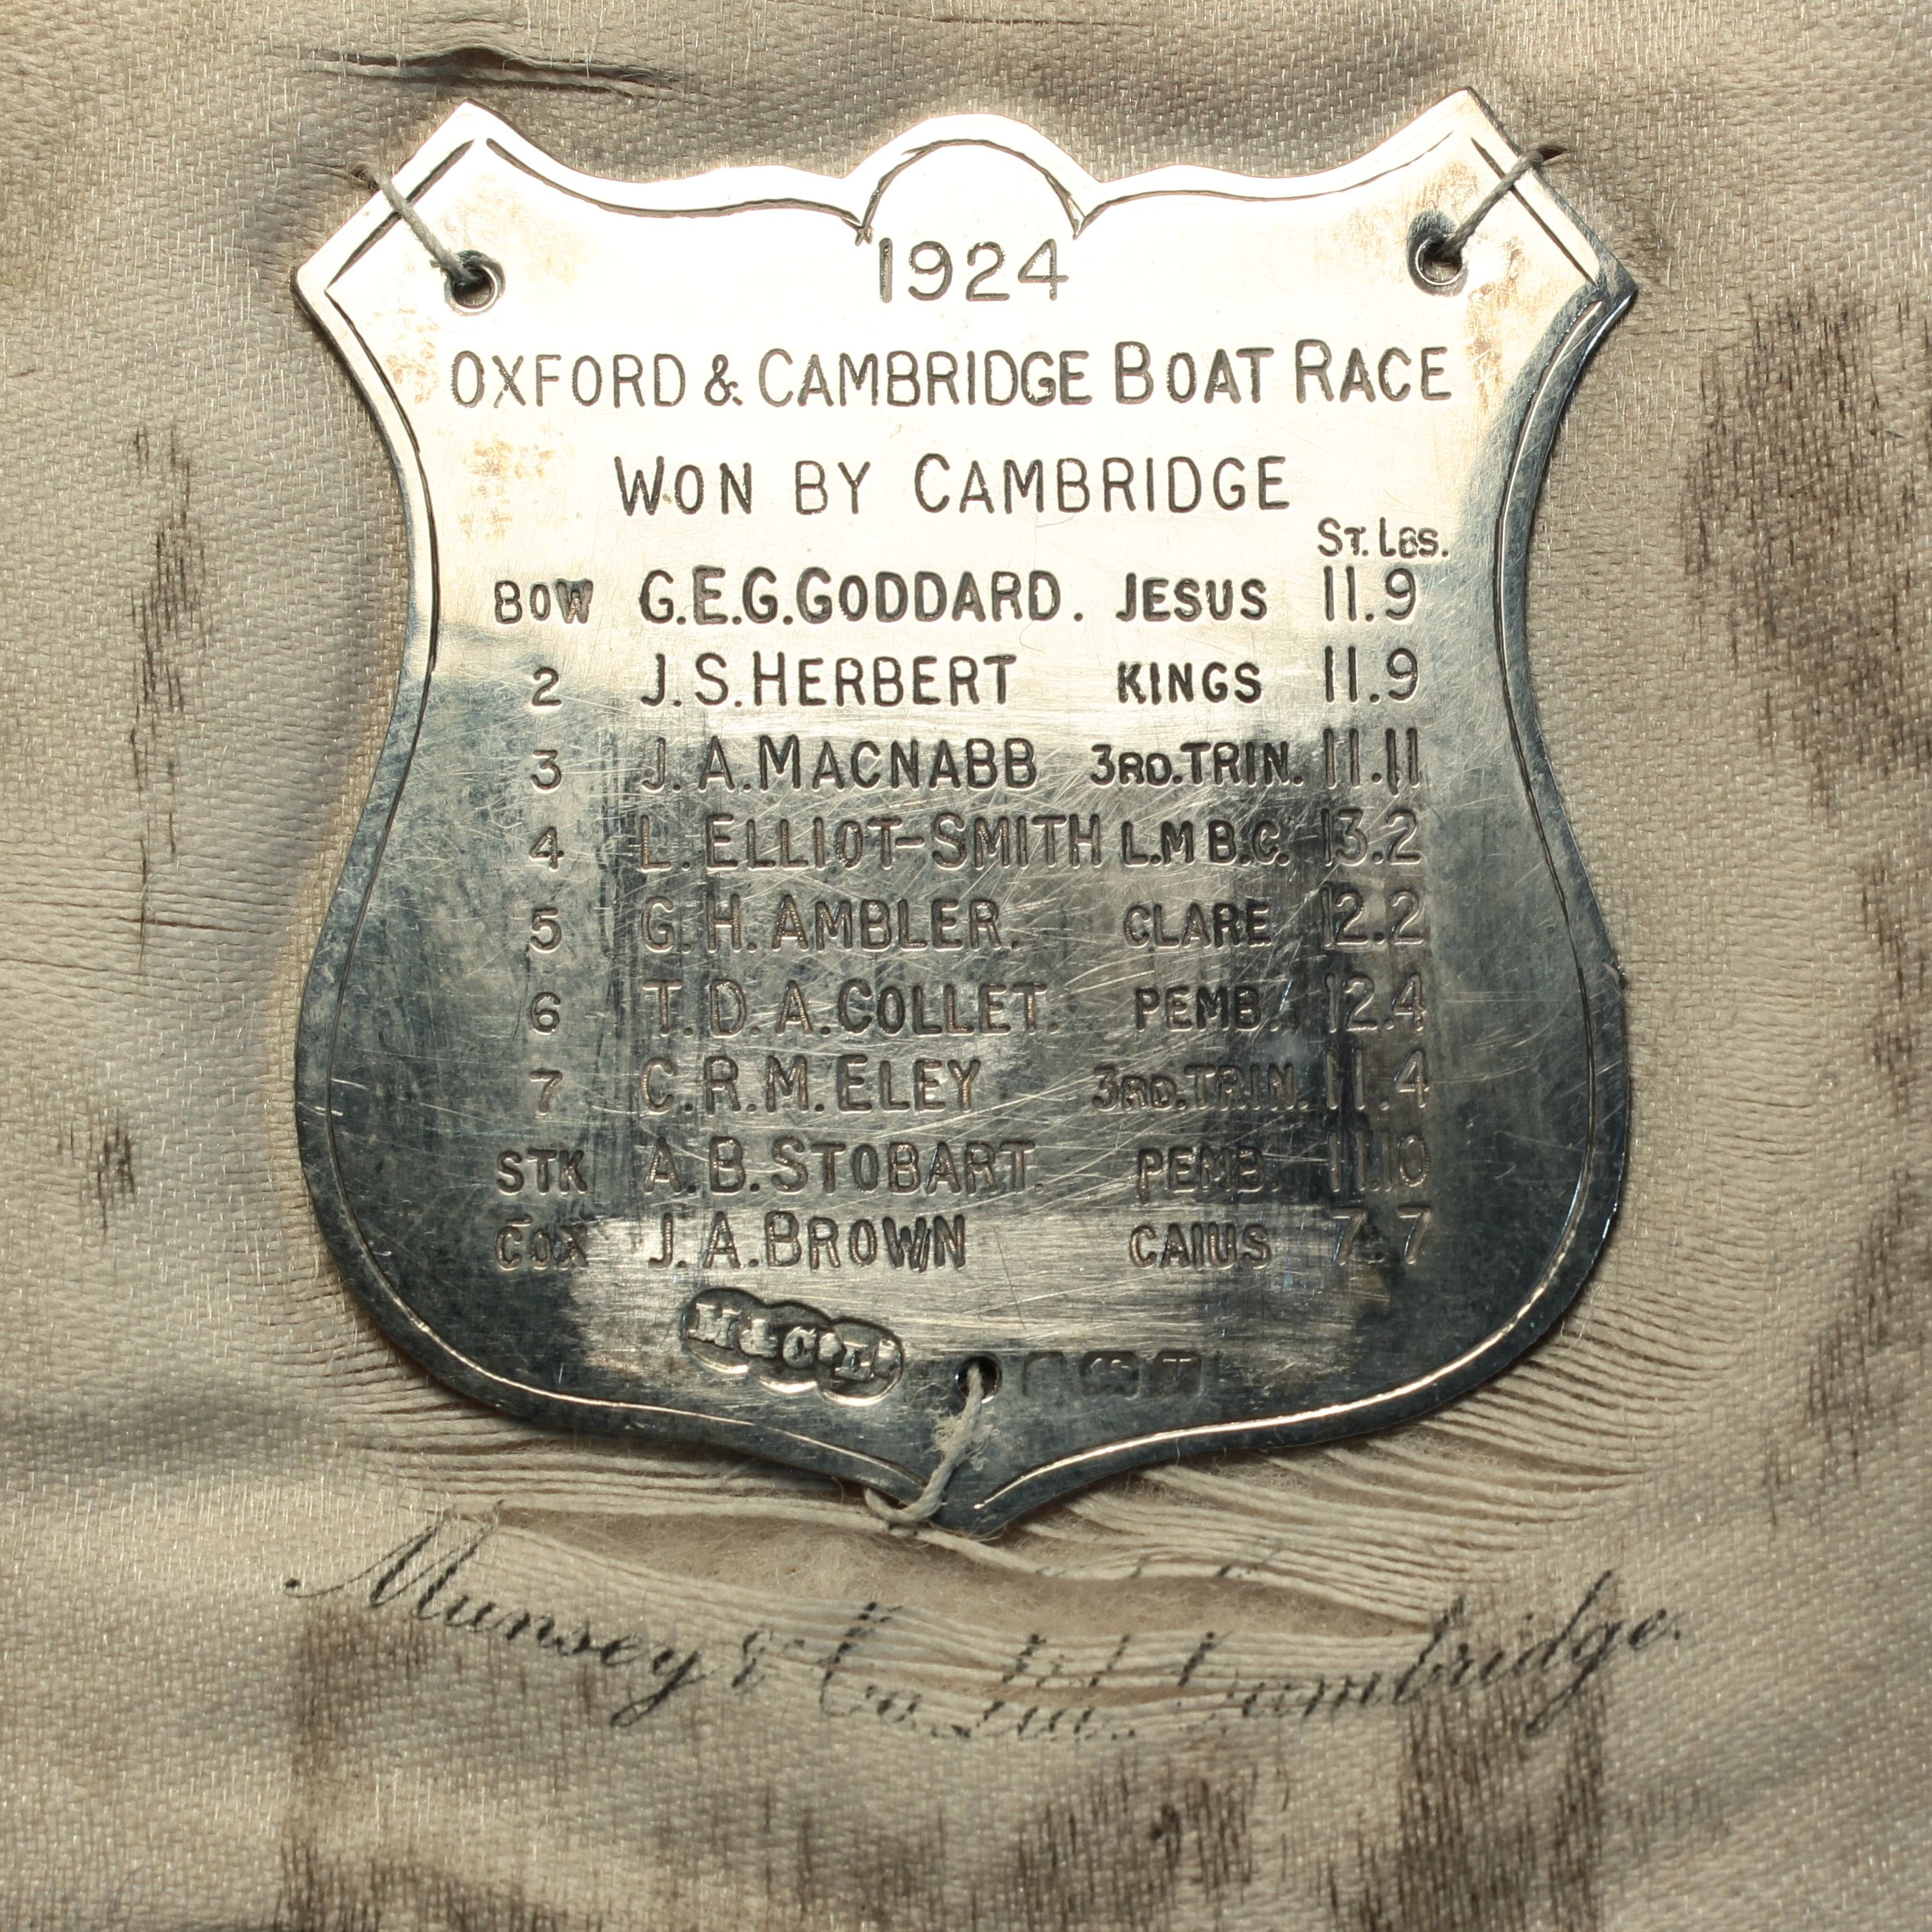 1924
OXFORD & CAMBRIDGE BOAT RACE
WON BY CAMBRIDGE
ST. LBS.
BOW G.E.G.GODDARD. JESUS 11.9
2 J.S.HERBERT KINGS 11.9
3 J.A.MACNABB 3RD.TRIN. 11.11
4 L.ELLIOT-SMITH L.M.B.C. 13.2
5 G.H.AMBLER. CLARE 12.2
6 T.D.A.COLLET. PEMB. 12.4
7 C.R.M.ELEY 3RD.TRIN. 11.4
STK A.B.STOBART. PEMB. 11.10
COX J.A.BROWN CAIUS 7.7
M&CoLd
Munsey & Co. Ltd. Cambridge.